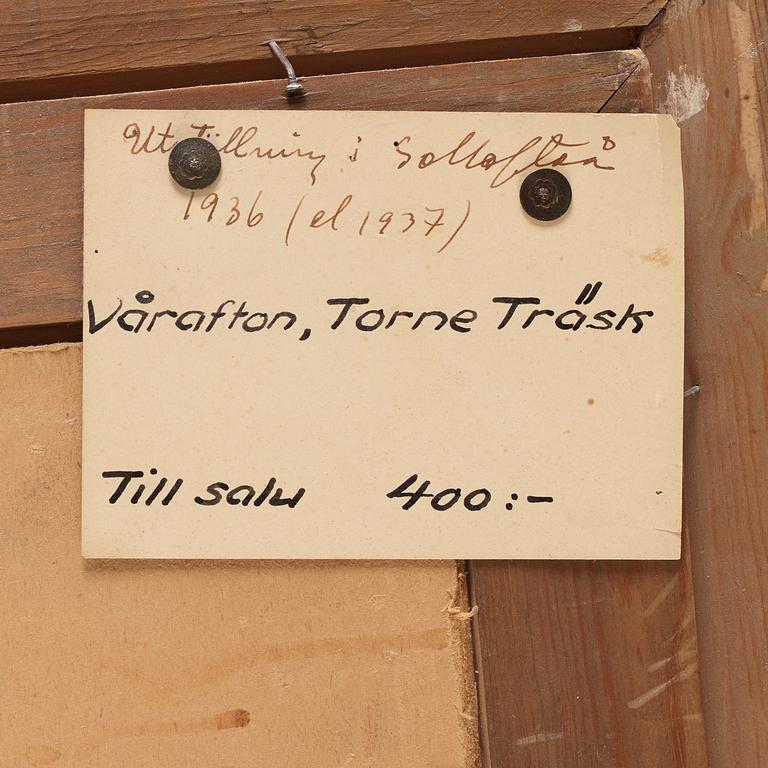 Utställning i Sollefteå
1936 (el 1937)
Vårafton, Torne Träsk
Till salu 400:-